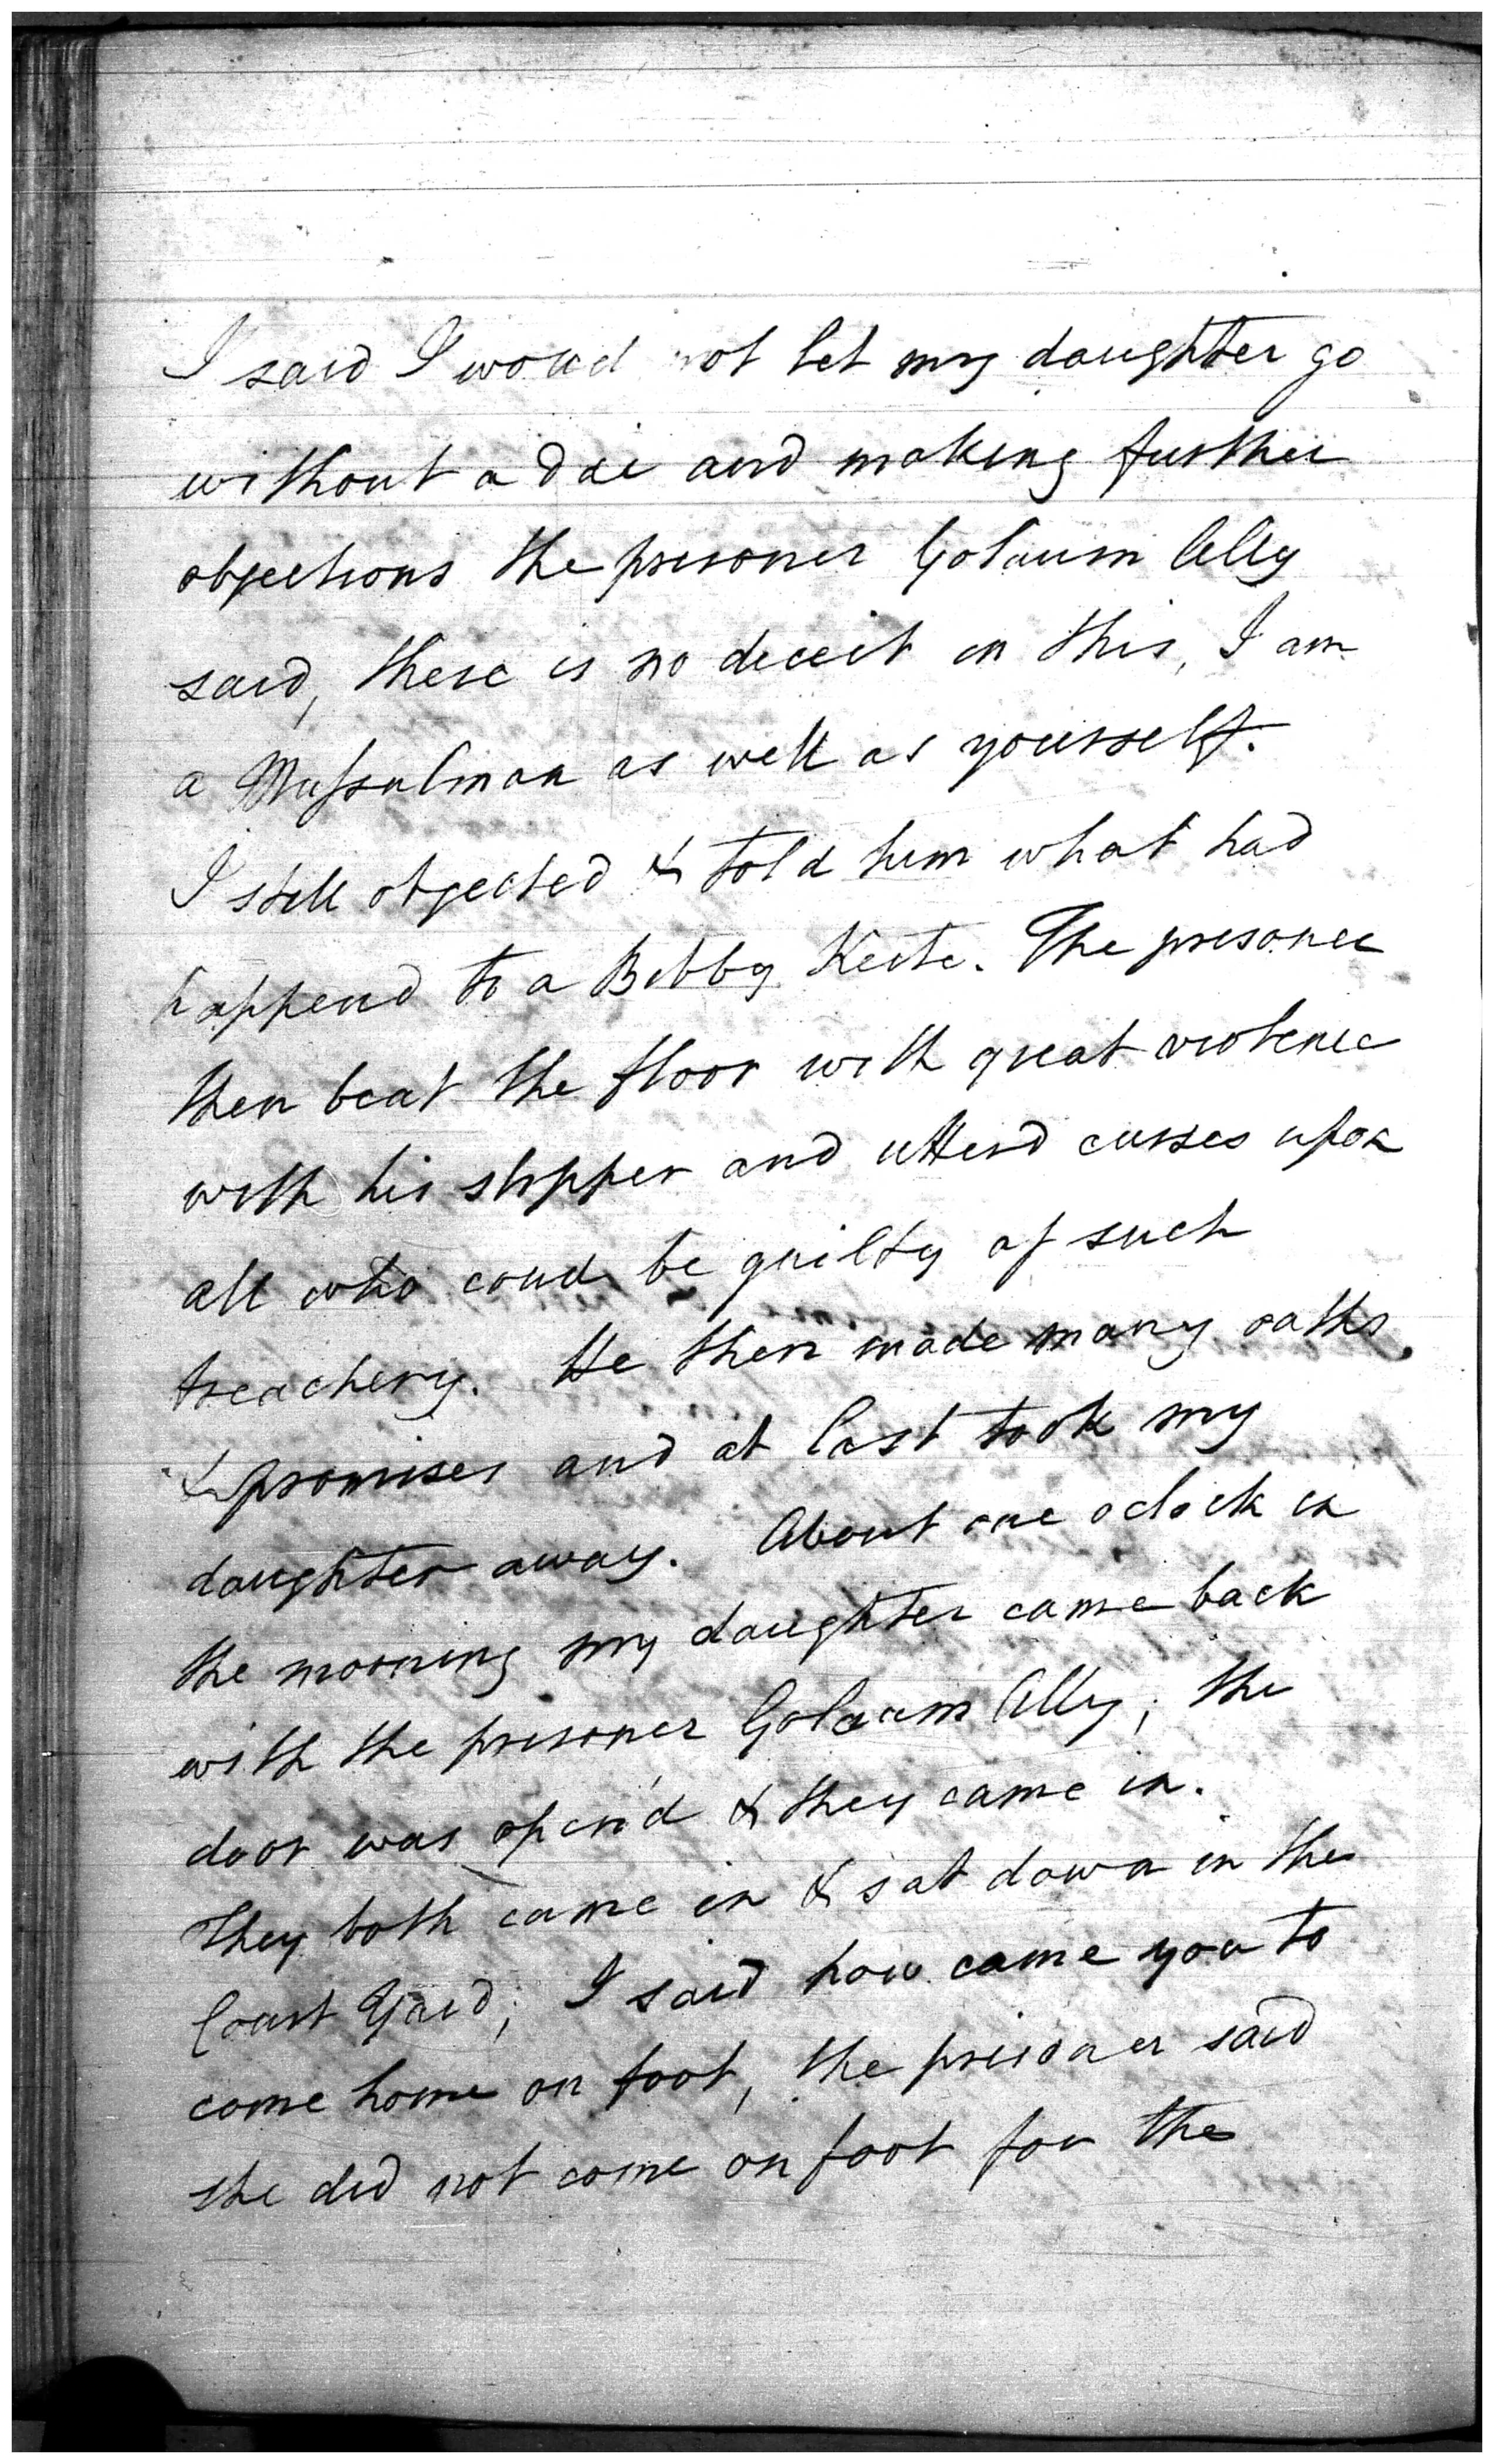 I said I woud not let my daughter go
without a Dai and making further
objections the prisoner Golaum Ally
said, there is no deceit in this, I am
a Mussulman as well as yourself.
I still objected & told him what had
happend to a Bebby Keete. The prisoner
then beat the floor with great violence
with his slipper and utterd curses upon
all who coud be guilty of such
treachery. He then made many oaths
& promises and at last took my
daughter away. About one oclock in
the morning my daughter came back
with the prisoner Golaum Ally; the
door was open'd & they came in.
They both came in & sat down in the
Court Yard; I said how came you to
come home on foot, the prisoner said
she did not come on foot for the